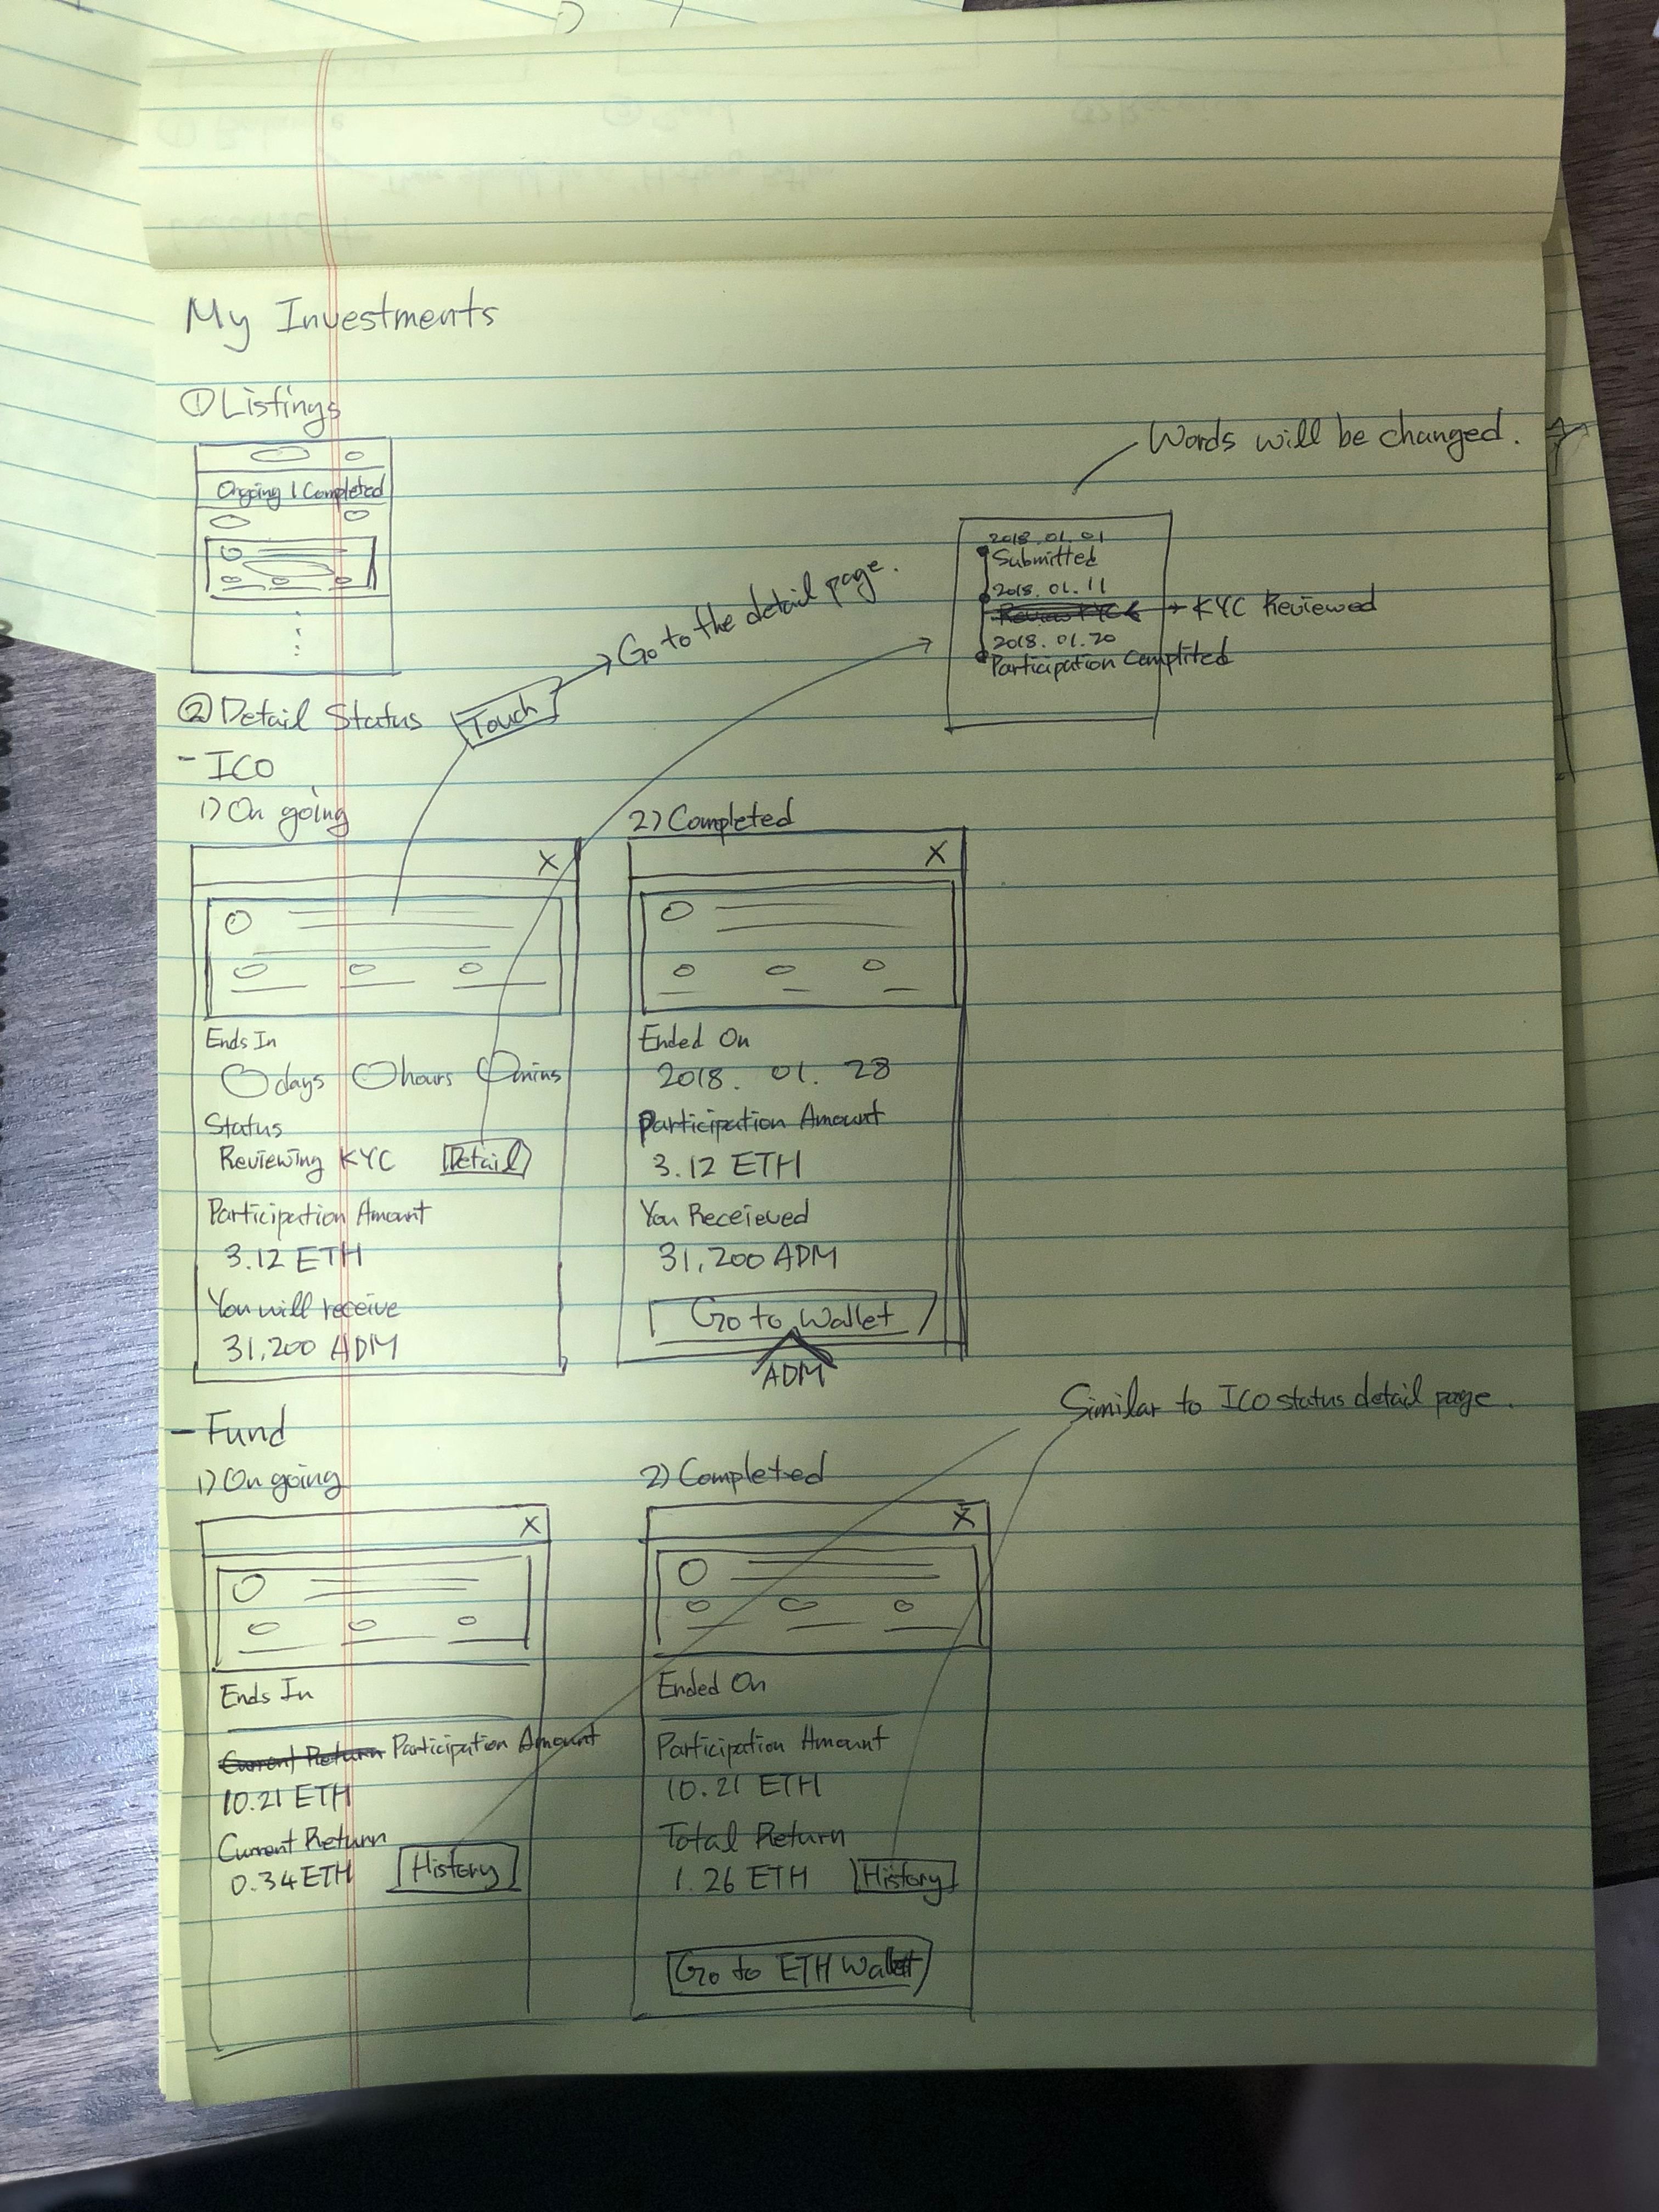 My Investments
① Listings
Ongoing | Completed
Words will be changed.
2018.01.01
Submitted
2018.01.11
Review KYC → KYC Reviewed
2018.01.20
Participation Complited
Go to the detail page.
② Detail Status
Touch
- ICO
1) On going
X
Ends In
days hours mins
Status
Reviewing KYC Detail
Participation Amount
3.12 ETH
You will receive
31,200 ADM
2) Completed
X
Ended On
2018. 01. 28
Participation Amount
3.12 ETH
You Receieved
31,200 ADM
Go to Wallet
ADM
Similar to ICO status detail page.
- Fund
1) On going
X
Ends In
Current Return Participation Amount
10.21 ETH
Current Return
0.34 ETH History
2) Completed
X
Ended On
Participation Amount
10.21 ETH
Total Return
1.26 ETH History
Go to ETH Wallet